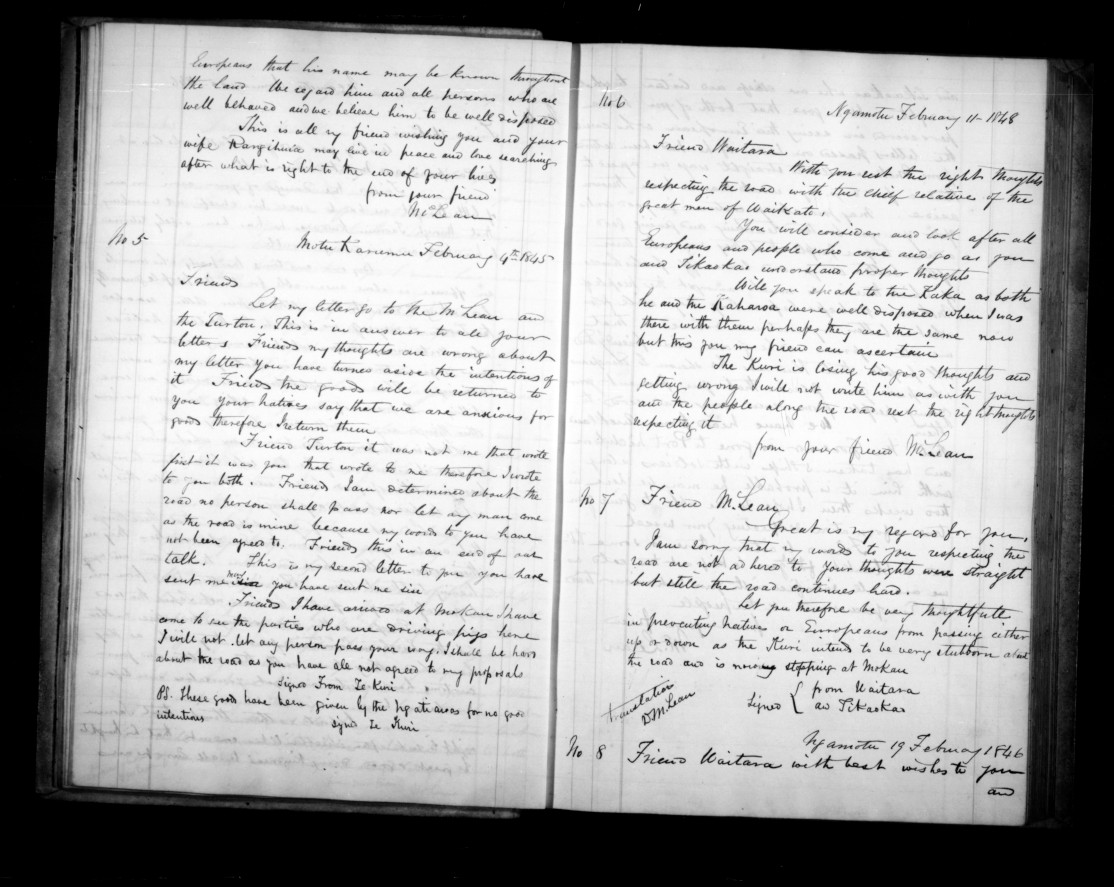 Europeans that his name may be known throughout
the land We regard him and all persons who are
well behaved and we believe him to be well disposed
This is all my friend wishing you and your
wife Rangihuia may live in peace and love searching
after what is right to the end of your lives
from your friend
McLean
No 5
Motu Karamu February 4th 1845
Friends
Let my letter go to the McLean and
the Turton. This is in answer to all your
letters Friends my thoughts are wrong about
my letter You have turned aside the intentions of
it Friends the goods will be returned to
you your natives say that we are anxious for
goods therefore I return them
Friend Turton it was not me that wrote
first it was you that wrote to me therefore I wrote
to you both. Friends I am determined about the
road no person shall pass nor let any man come
as the road is mine because my words to you have
not been agreed to, Friends this is an end of our
talk. This is my second letter to you you have
sent me you have sent me sin
Friends I have arrived at Mokau I have
come to see the parties who are driving pigs here
I will not let any person pass your way. I shall be hard
about the road as you have all not agreed to my proposals
Signed From Te Kuri
PS. These goods have been given by the Ngatiawas for no good
intentions
Signd Te Kuri
No 6
Ngamotu February 11 1845
Friend Waitara
With you rest the right thoughts
respecting the road with the chief relative of the
great men of Waikato.
You will consider and look after all
Europeans and people who come and go as you
and Tikaokao understand proper thoughts
Will you speak to the Kaka as both
he and the Kaharoa were well disposed when I was
there with them perhaps they are the same now
but this you my friend can ascertain
The Kuri is losing his good thoughts and
getting wrong I will not write him as with you
and the people along the road rest the right thoughts
respecting it
from your friend McLean
No 7
Friend McLean
Great is my regard for you,
I am sorry that my words to you respecting the
road are not adhered to your thoughts were straight
but still the road continues hard.
Let you therefore be very thoughtfull
in preventing natives or Europeans from passing either
up or down as the Kuri intends to be very stubborn about
the road and is now stopping at Mokau
Translation
D McLean
Signed { from Waitara
and Tikaokao
Ngamotu 19 February 1846
No 8
Friend Waitara with best wishes to you
and